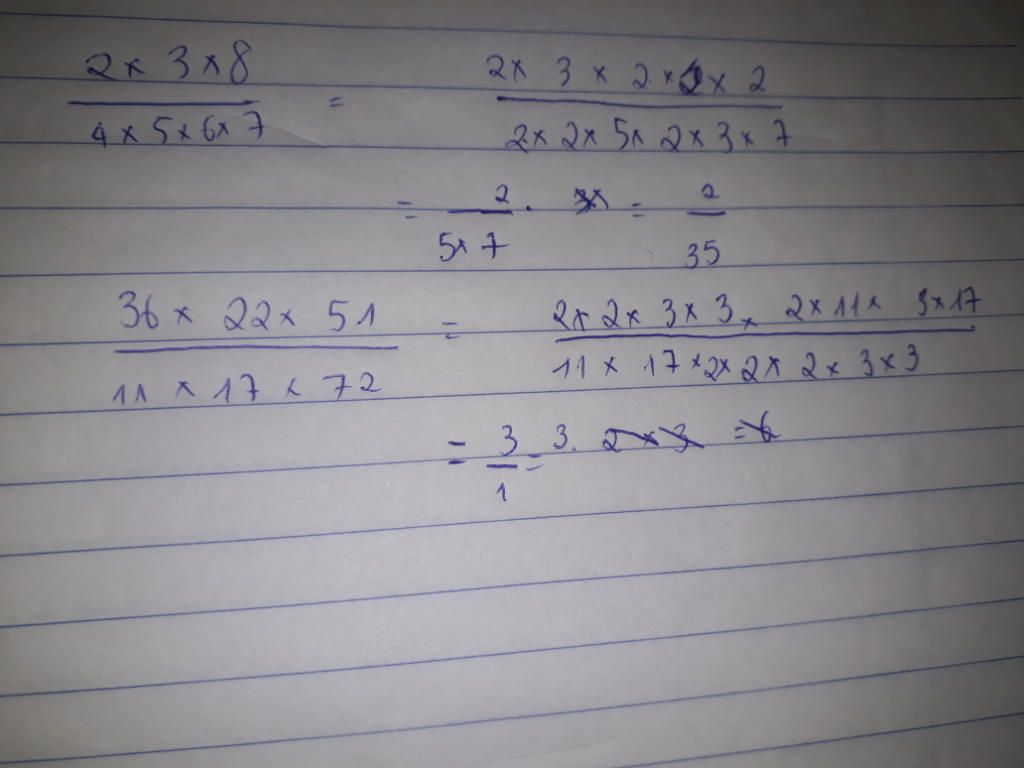 2 × 3 × 8 / 4 × 5 × 6 × 7 = 2 × 3 × 2 × 2 × 2 / 2 × 2 × 5 × 2 × 3 × 7
= 2 / 5 × 7 . = 2 / 35
36 × 22 × 51 / 11 × 17 × 72 = 2 × 2 × 3 × 3 × 2 × 11 × 3 × 17 / 11 × 17 × 2 × 2 × 2 × 3 × 3
= 3 / 1 = 3. 2 × 3 = 6